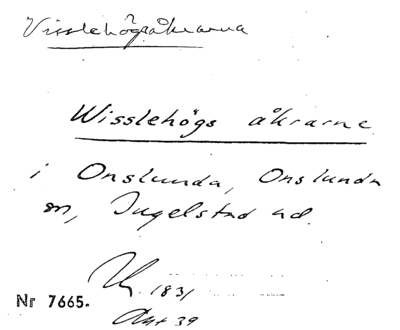 Visslehögsåkrarna
Wisslehögs åkrarne
i Onslunda, Onslunda
sn, Ingelstad hd.
1831
Nr 7665.
Akt 39